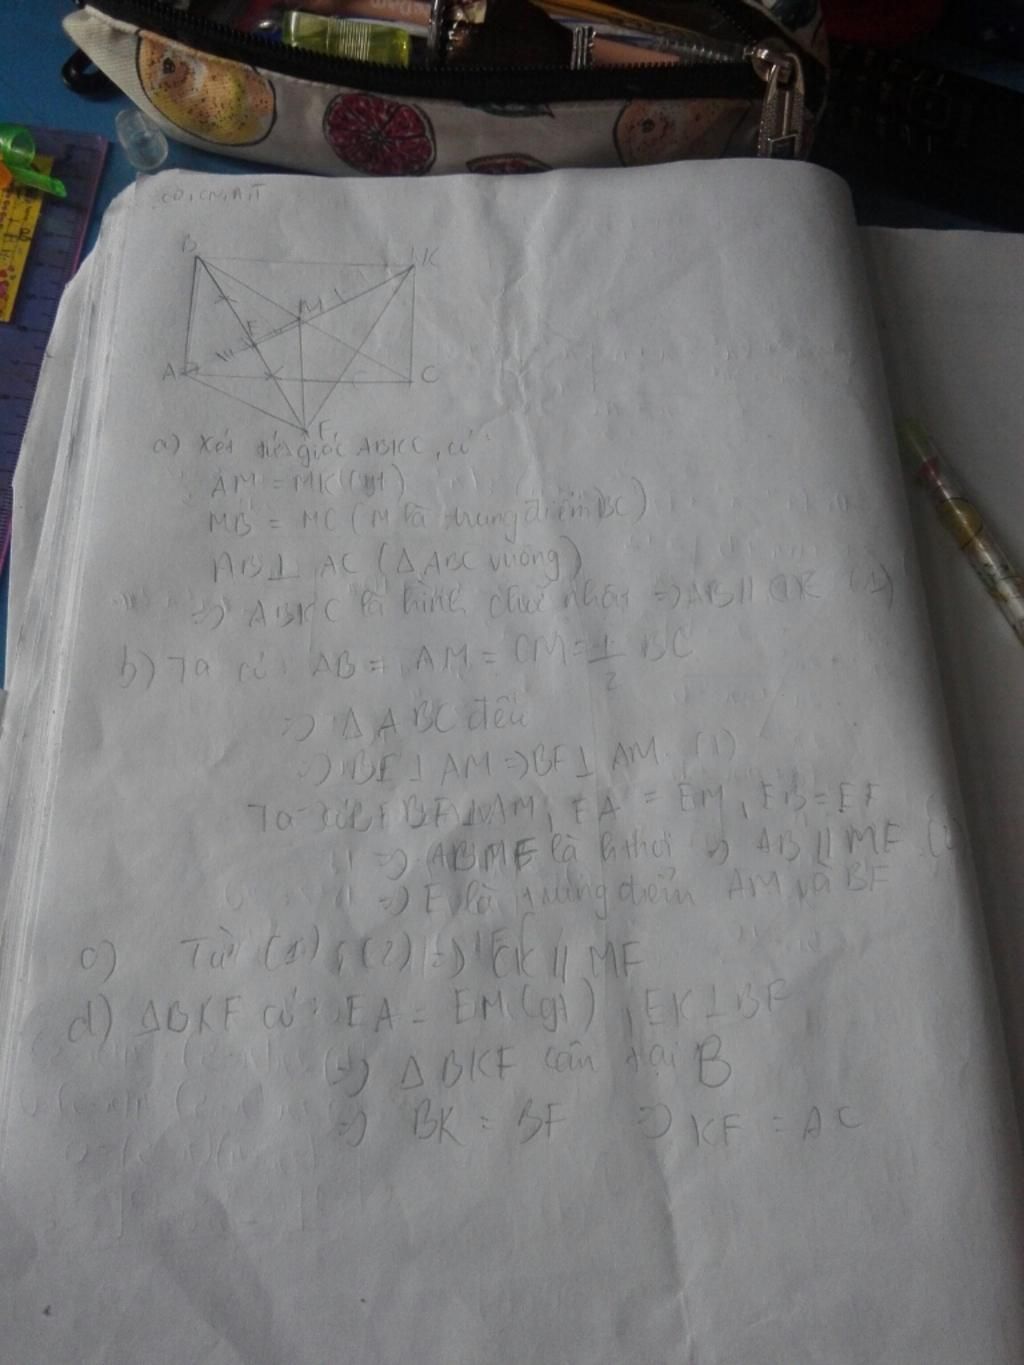 B
K
M
E
A
C
F
a) Xét tứ giác ABKC, có:
AM = MK (gt)
MB = MC (M là trung điểm BC)
AB ⊥ AC (Δ ABC vuông)
=> ABKC là hình chữ nhật => AB // CK (1)
b) Ta có: AB = AM = CM = 1/2 BC
=> Δ ABC đều
=> BE ⊥ AM => BF ⊥ AM (1)
Ta có BF ⊥ AM, EA = EM, EB = EF
=> ABMF là hthoi => AB // MF (2)
=> E là trung điểm AM và BF
c) Từ (1), (2) => CK // MF
d) ΔBKF có: EA = EM (gt), EK ⊥ BF
=> Δ BKF cân tại B
=> BK = BF => KF = AC